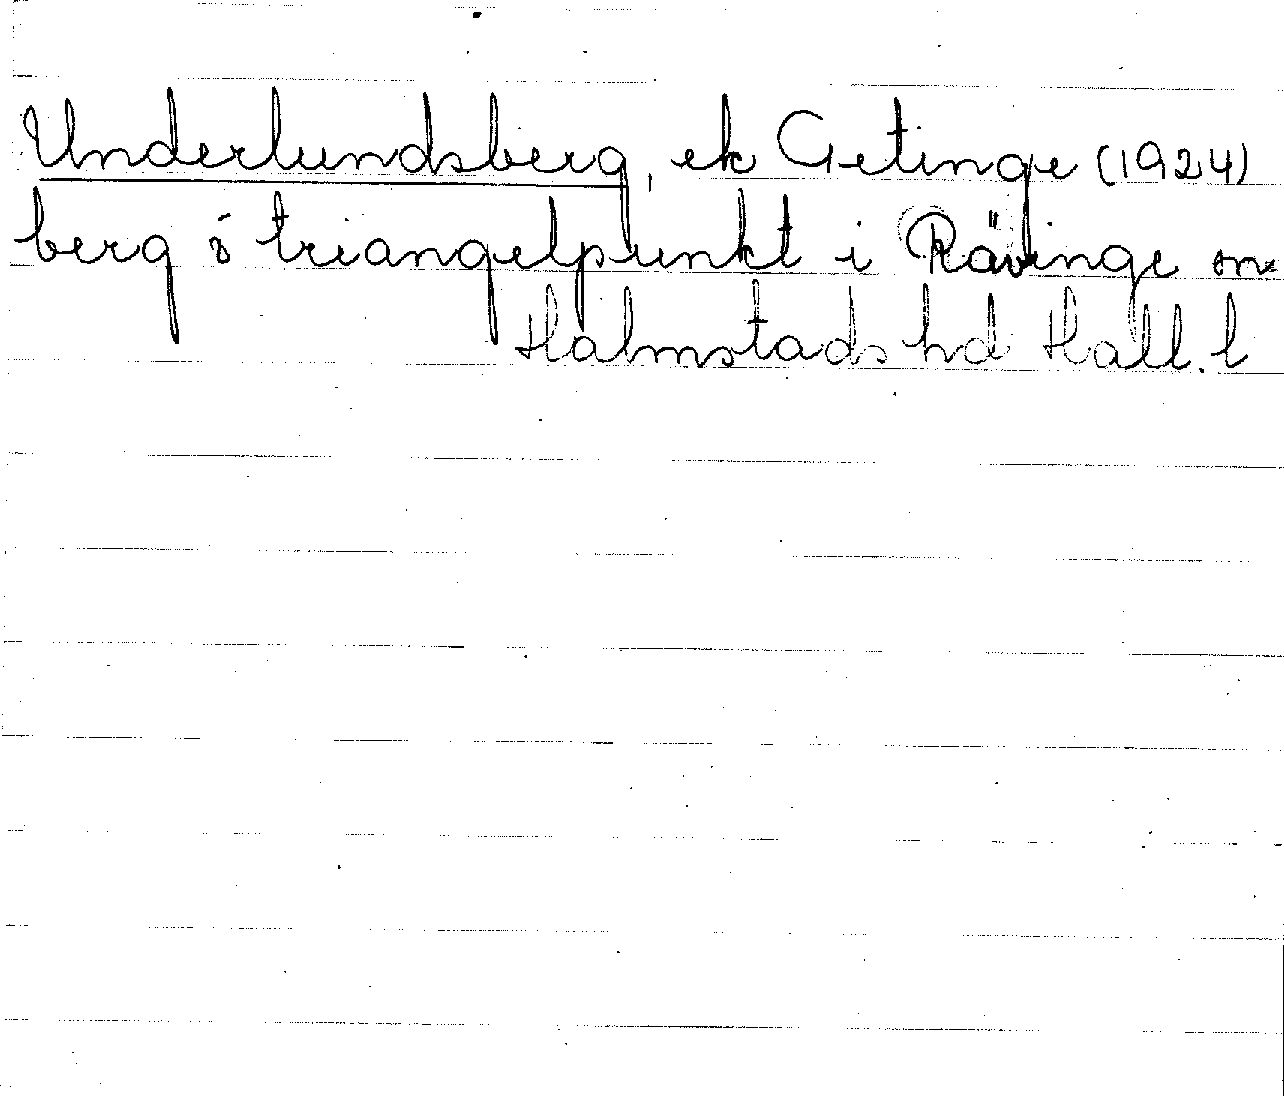 Underlundsberg, ek Getinge (1924)
berg o triangelpunkt i Rävinge sn
Halmstads hd Hall. l